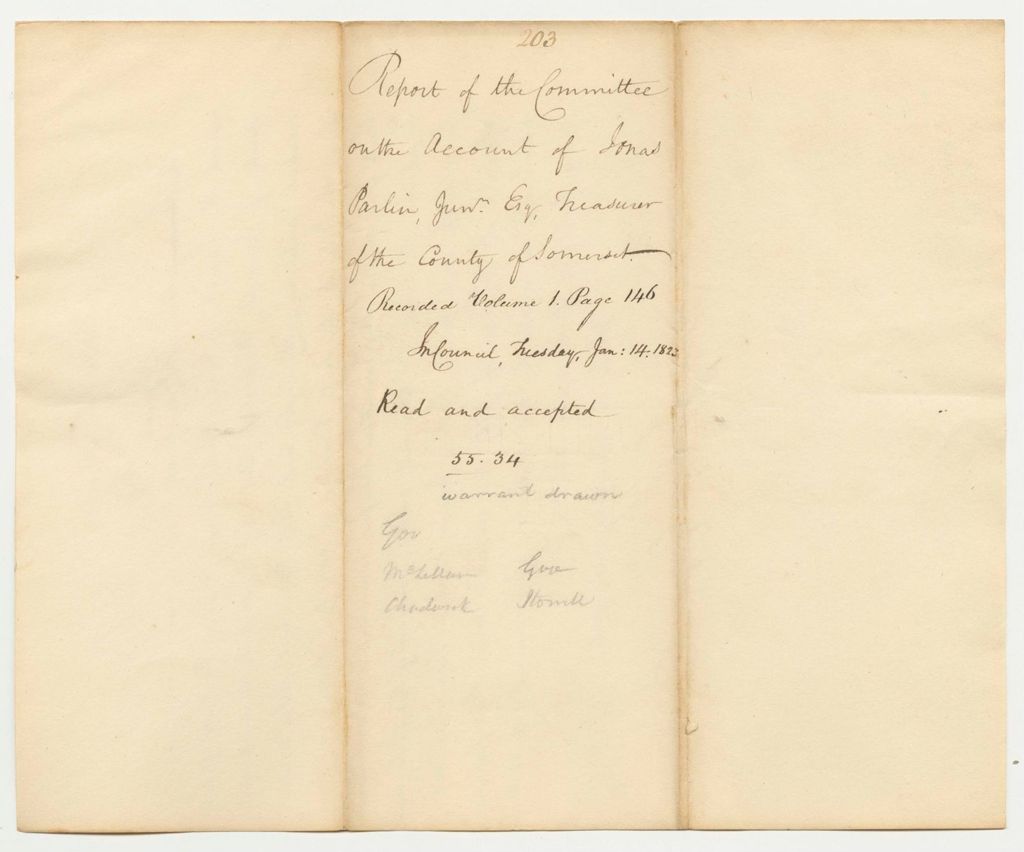 203
Report of the Committee
on the Account of Jonas
Parlin, Junr. Esq, Treasurer
of the County of Somerset.
Recorded Volume 1. Page 146
In Council, Tuesday, Jan: 14. 1823
Read and accepted
55.34
warrant drawn
Gov
McLellan
Chadwick Stowell